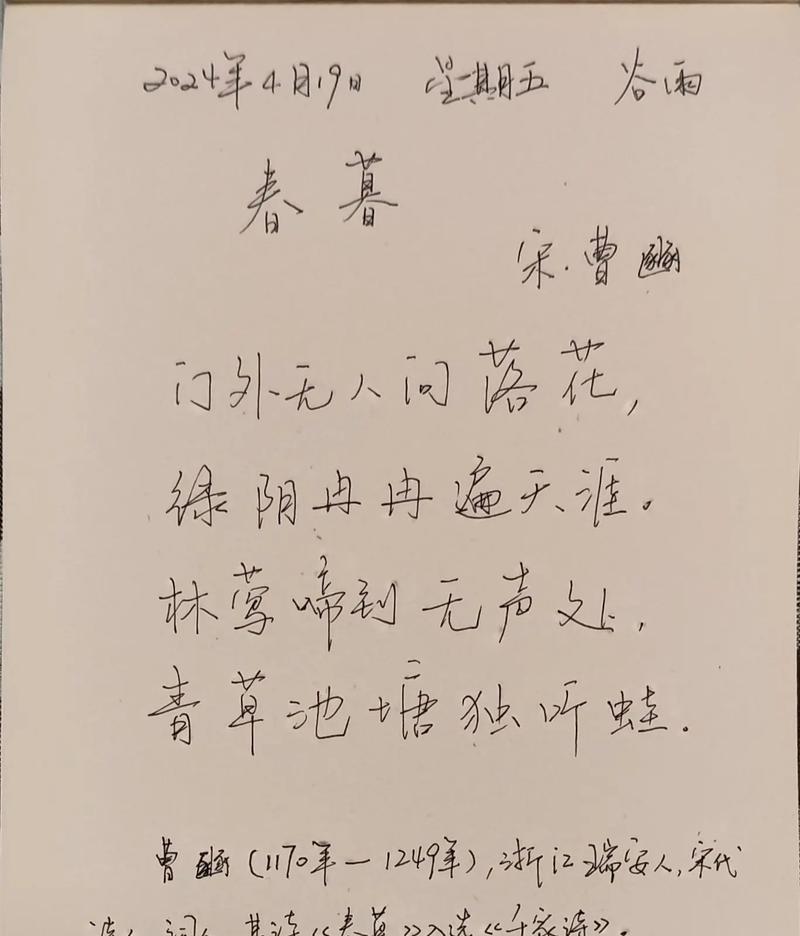 2024年4月19日 星期五 谷雨
春暮
宋.曹豳
门外无人问落花,
绿阴冉冉遍天涯。
林莺啼到无声处,
青草池塘独听蛙.
曹豳(1170年—1249年),浙江瑞安人,宋代
诗人、词人,其诗《春暮》入选《千家诗》。